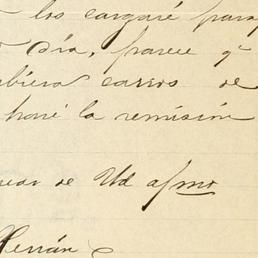 los cargaré para
día, parece q
hubiera carros de
haré la remisión
de Ud afmo
Herrán